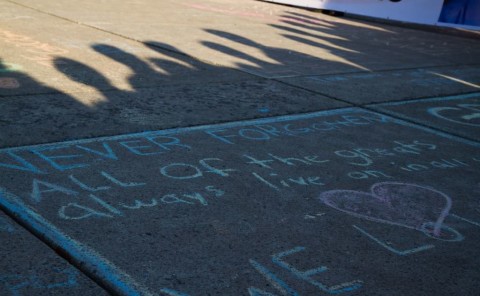 NEVER FORGOTTEN
ALL of the greats
always live on in all
WE